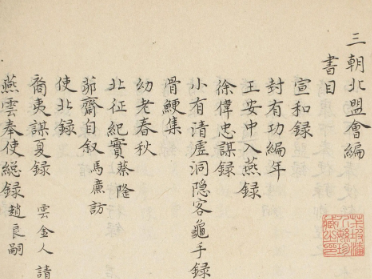 三朝北盟會編
書目
宣和録
封有功編年
王安中入燕録
徐偉忠謀録
小有清虚洞隠客龜手録
骨鯁集
幼老春秋
北征紀實 蔡隆
茆齋自叙 馬廉訪
使北録
裔夷謀夏録 雲金人請
燕雲奉使総録 趙良嗣